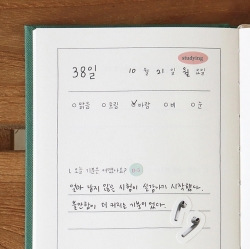 studying
38일 10 월 21 일 월 요일
맑음 흐림 바람 비 눈
1. 오늘 기분은 어땠나요?
얼마 남지 않은 시험이 실감나기 시작했다.
불안함이 더 커지는 기분이었다.